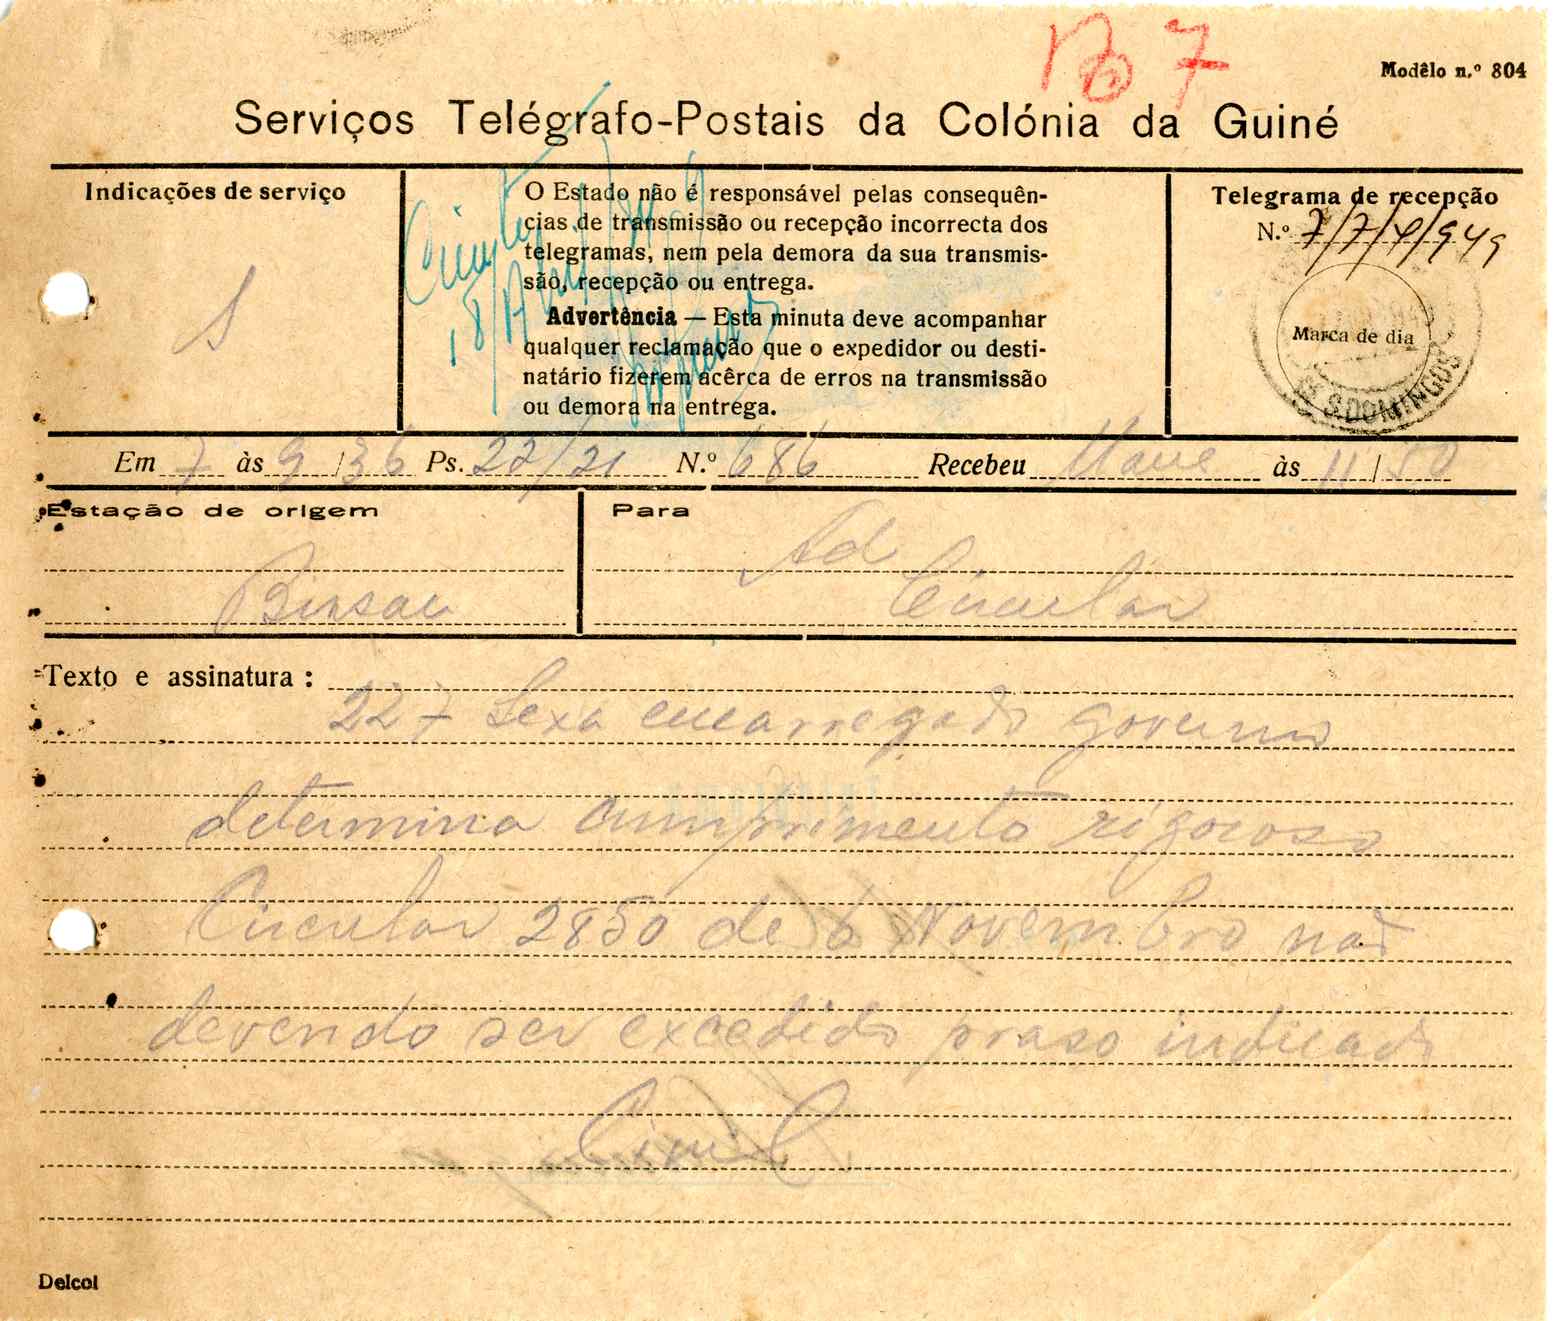 Po 7
Modêlo n.º 804
Serviços Telégrafo-Postais da Colónia da Guiné
Indicações de serviço
S
O Estado não é responsável pelas consequên-
cias de transmissão ou recepção incorrecta dos
telegramas, nem pela demora da sua transmis-
são, recepção ou entrega.
Advertência — Esta minuta deve acompanhar
qualquer reclamação que o expedidor ou desti-
natário fizerem acêrca de erros na transmissão
ou demora na entrega.
Telegrama de recepção
N.º 7/7/4/949
Marca de dia
S. DOMINGOS
Em 7 às 9/36 Ps. 22/21 N.º 686 Recebeu Mane às 11/50
Estação de origem
Bissau
Para
Ad
Circular
Texto e assinatura :
227 Sexa encarregado governo
determina cumprimento rigoroso
Circular 2850 de 6 Novembro não
devendo ser excedido praso indicado
Civil
Delcol